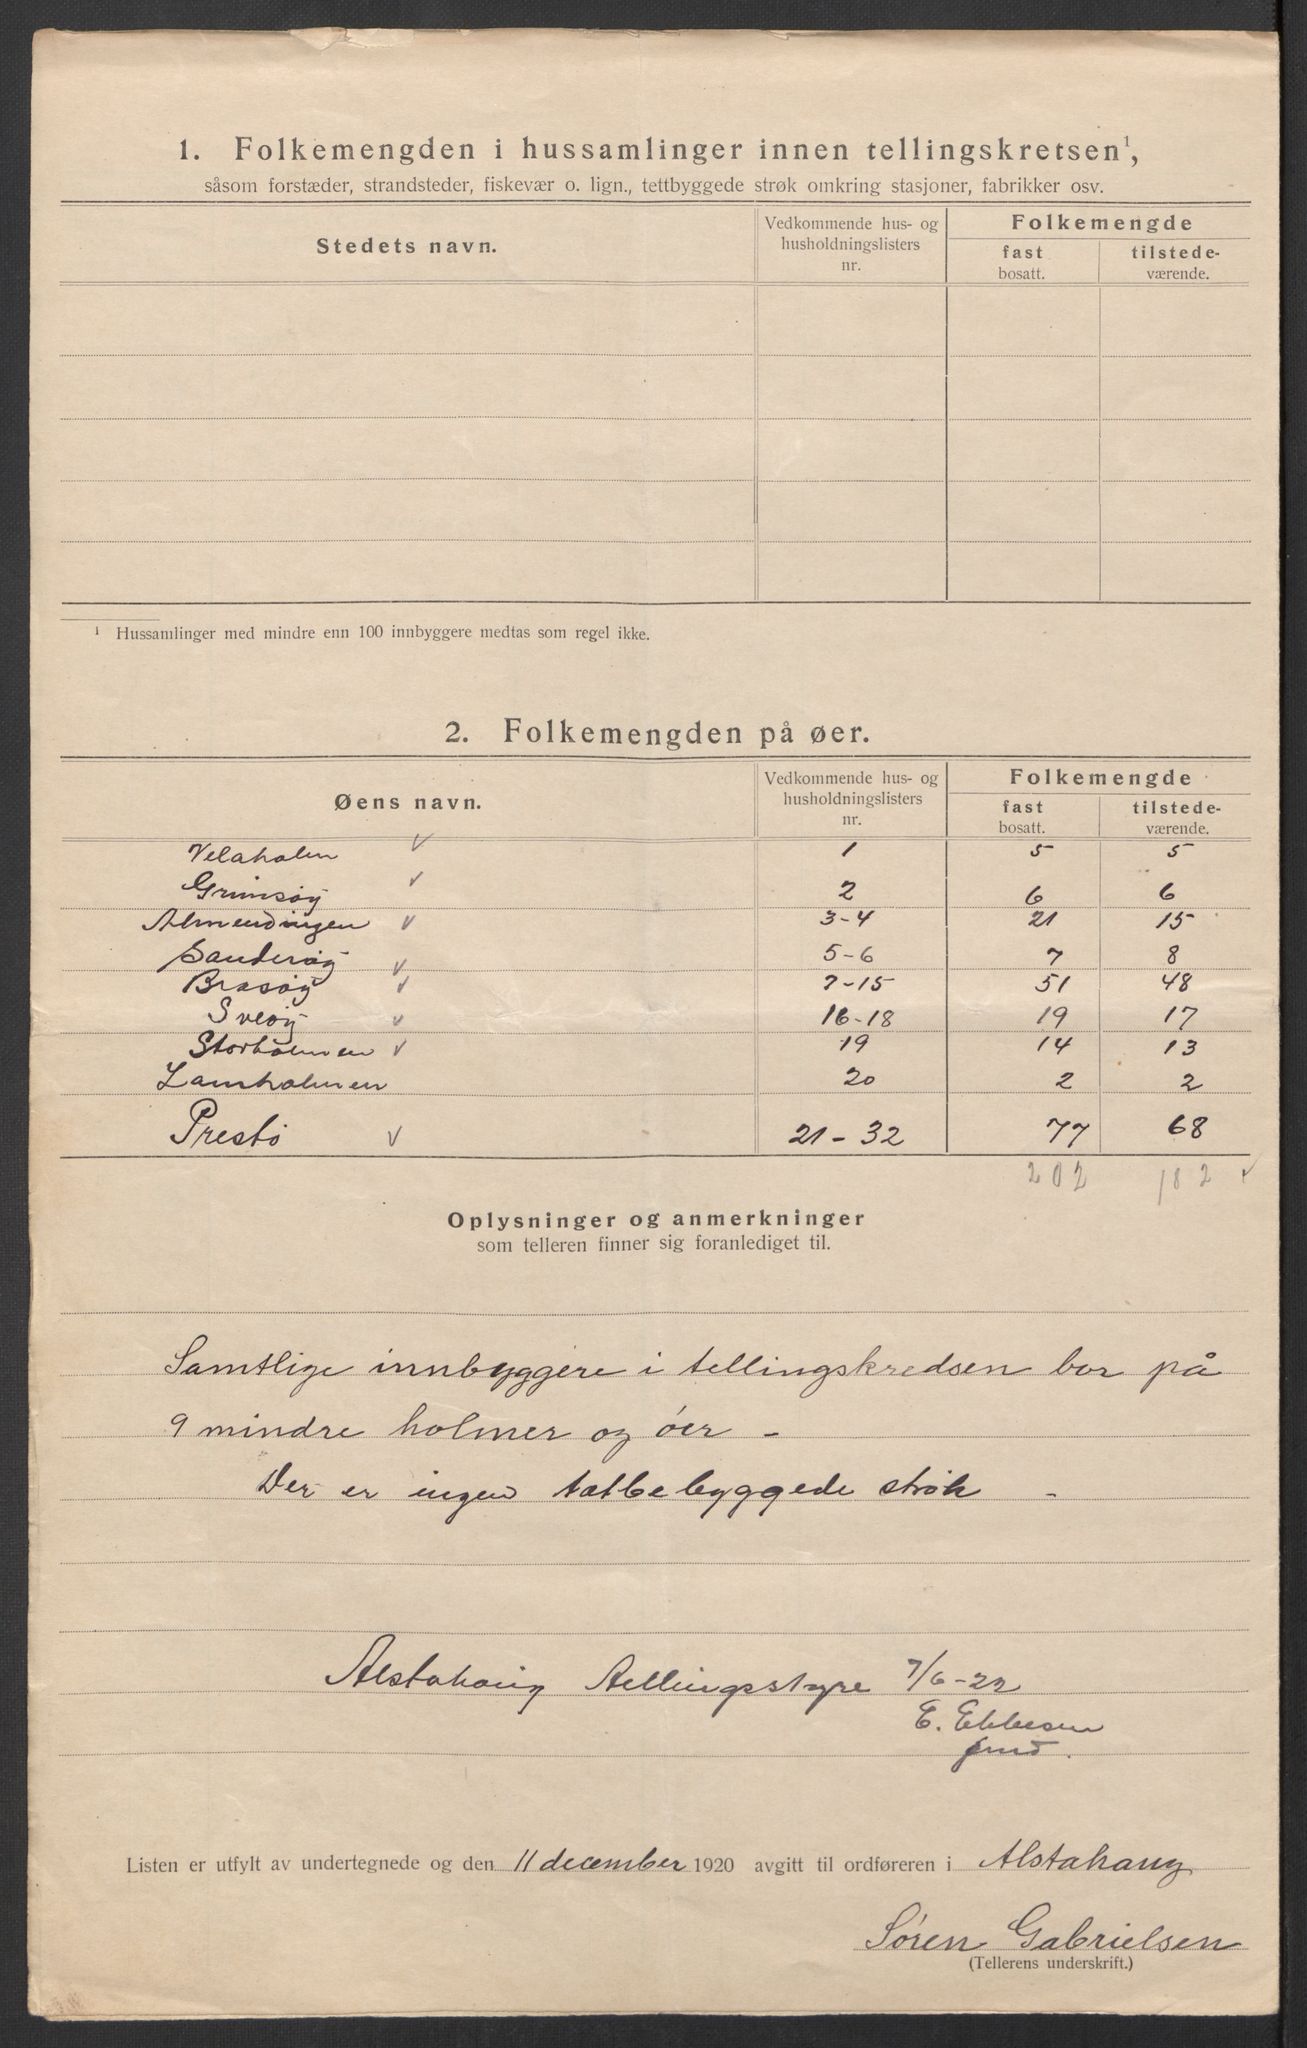 1. Folkemengden i hussamlinger innen tellingskretsen¹,
såsom forstæder, strandsteder, fiskevær o. lign., tettbyggede strøk omkring stasjoner, fabrikker osv.
Stedets navn. Vedkommende hus- og husholdningslisters nr. Folkemengde fast bosatt. tilstede-værende.
¹ Hussamlinger med mindre enn 100 innbyggere medtas som regel ikke.
2. Folkemengden på øer.
Øens navn. Vedkommende hus- og husholdningslisters nr. Folkemengde fast bosatt. tilstede-værende.
Velaholm ✓ 1 5 5
Grimsøy ✓ 2 6 6
Almendingen ✓ 3-4 21 15
Sandesøy ✓ 5-6 7 8
Brasøy ✓ 7-15 51 48
Sveøy ✓ 16-18 19 17
Storholmen ✓ 19 14 13
Lamholmen 20 2 2
Prestö ✓ 21-32 77 68
202 182 ✓
Oplysninger og anmerkninger
som telleren finner sig foranlediget til.
Samtlige innbyggere i tellingskredsen bor på
9 mindre holmer og öer -
Der er ingen tætbebyggede strök -
Alstahaug Tellingsstyre 7/6-22
E. Ebbesen
Listen er utfylt av undertegnede og den 11 december 1920 avgitt til ordføreren i Alstahaug
Søren Gabrielsen
(Tellerens underskrift.)